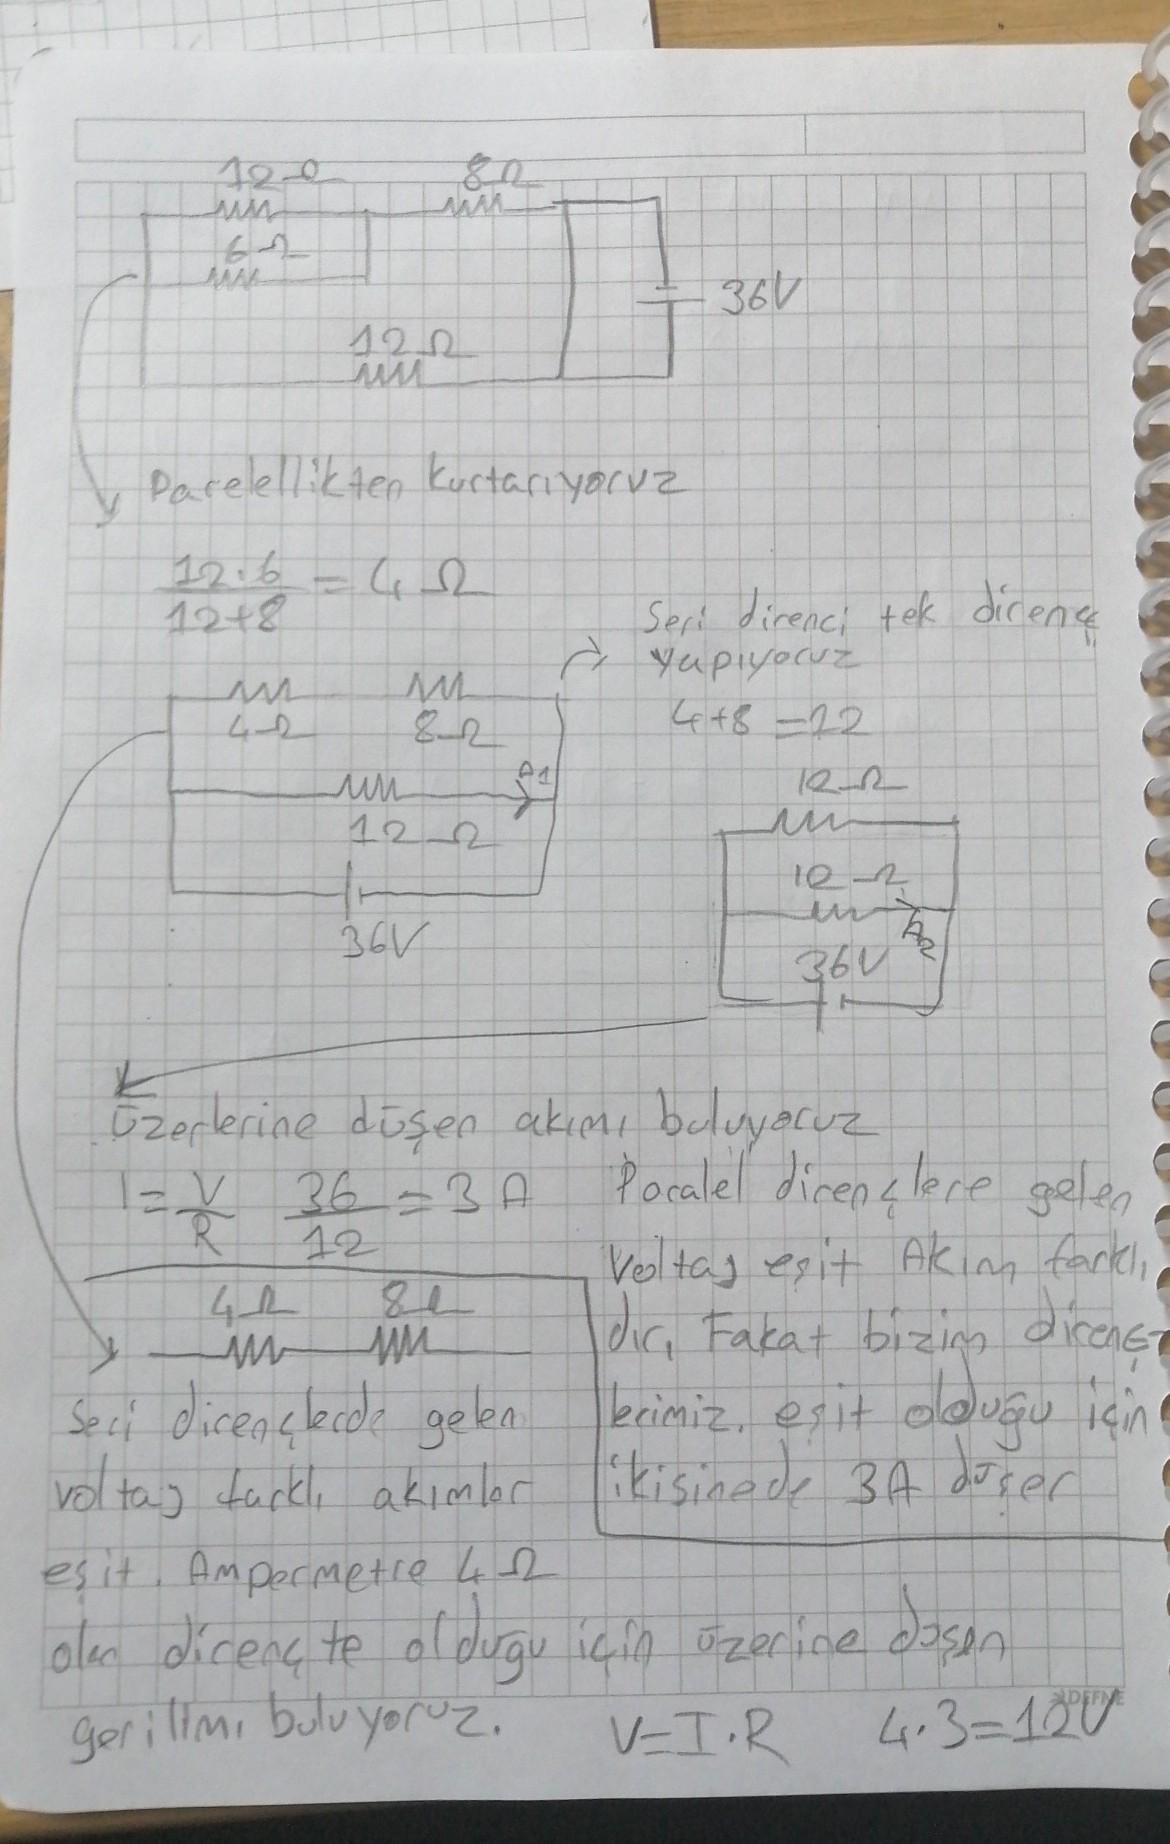 12 Ω
8Ω
6 Ω
36V
12 Ω
Parelellikten kurtarıyoruz
12.6 / 12+8 = 4 Ω
Seri direnci tek direnç
yapıyoruz
4+8 = 12
4Ω 8Ω
A1
12 Ω
36V
12 Ω
12 Ω
A2
36V
Üzerlerine düşen akımı buluyoruz
I = V/R 36/12 = 3 A
Paralel dirençlere gelen
Voltaj eşit Akım farklı
dır, Fakat bizim direnç-
lerimiz. eşit olduğu için
ikisinede 3A düşer
4Ω 8Ω
Seri dirençlerde gelen
voltaj farklı akımlar
eşit. Ampermetre 4 Ω
olan dirençte olduğu için üzerine düşen
gerilimi buluyoruz. V=I.R 4.3=12V
DEFNE